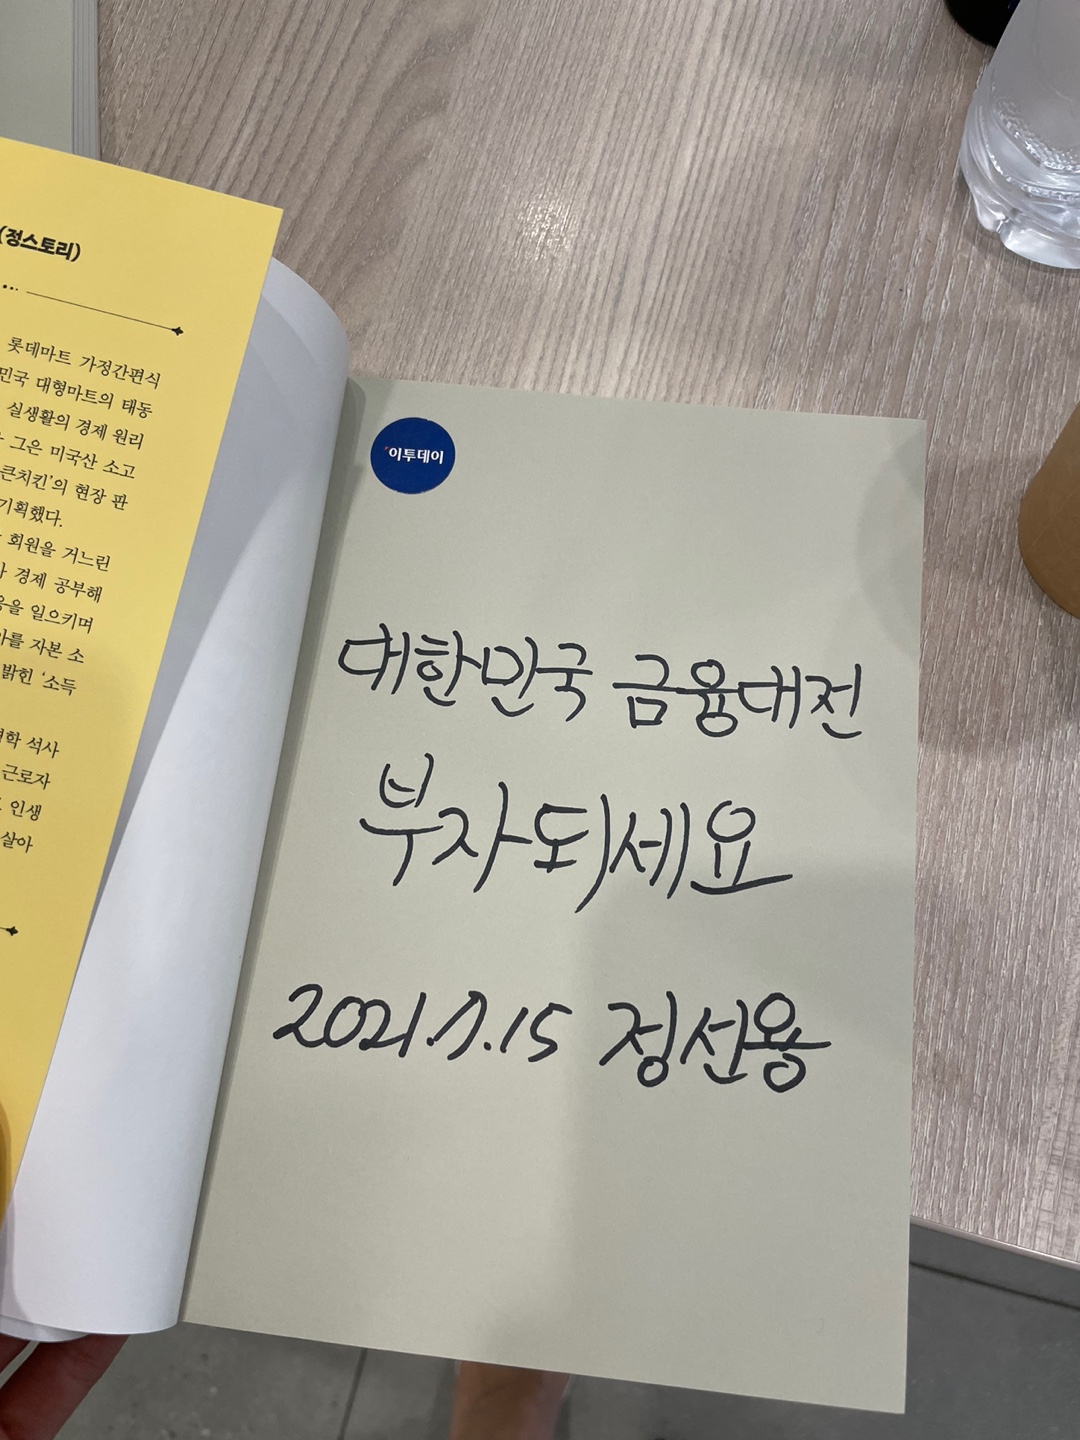 (정스토리)
롯데마트 가정간편식
민국 대형마트의 태동
실생활의 경제 원리
그은 미국산 소고
큰치킨'의 현장 판
기획했다.
회원을 거느린
경제 공부해
을 일으키며
를 자본 소
밝힌 '소득
학 석사
근로자
인생
살아
이투데이
대한민국 금융대전
부자되세요
2021.7.15 정선용